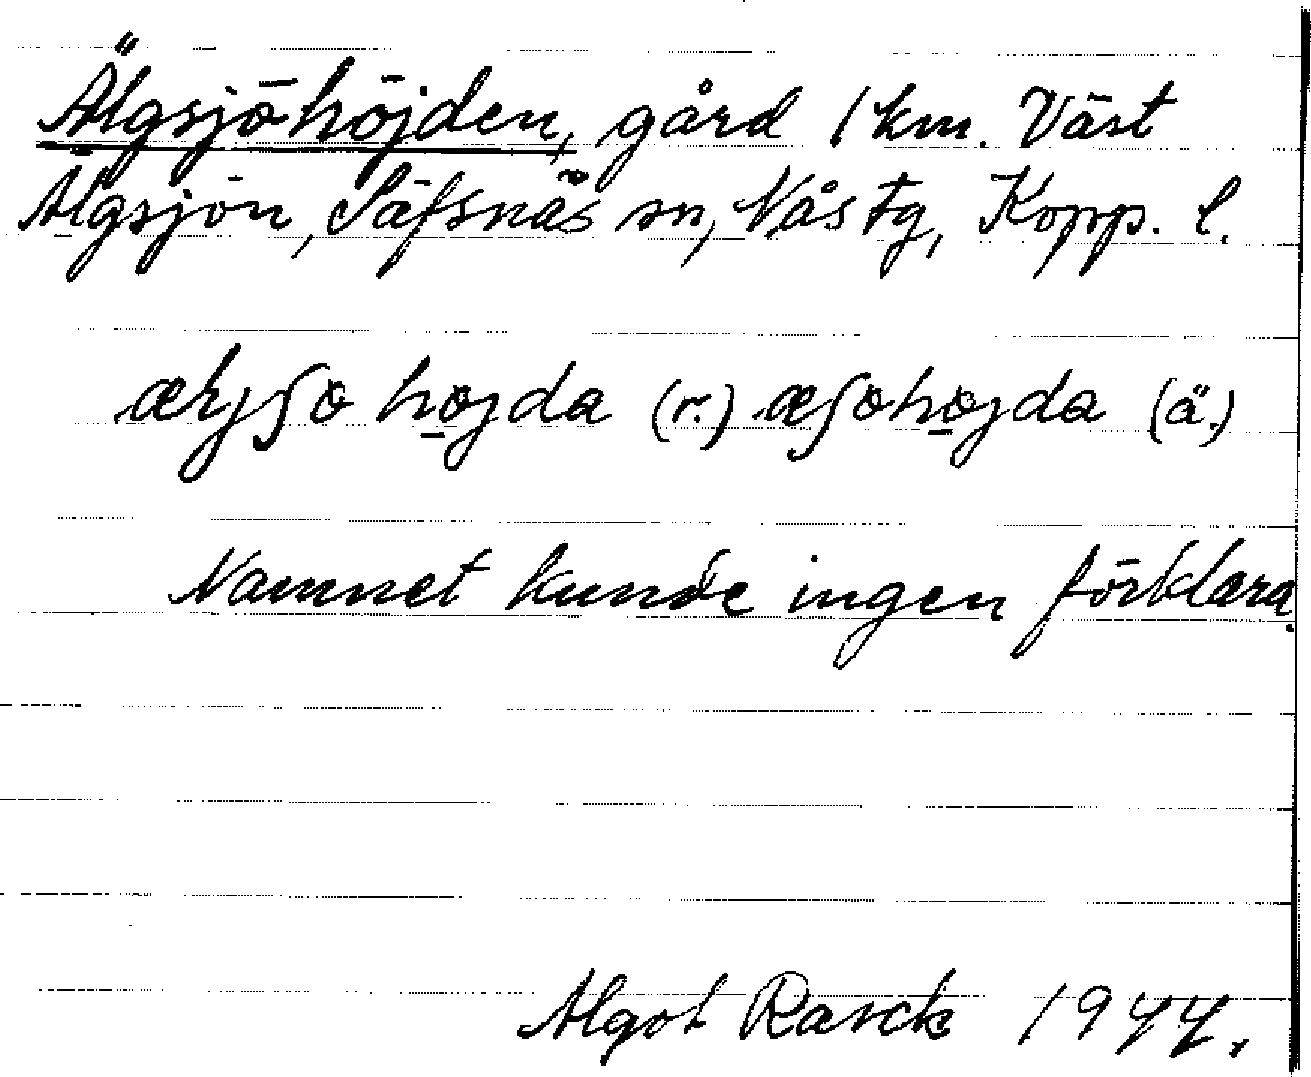 Älgsjöhöjden, gård 1 km. Väst
Älgsjön, Säfsnäs sn, Nås tg, Kopp. l.
æljʃo højda (r.) æʃohøjda (ä.)
Namnet kunde ingen förklara.
Algot Rasck 1944.